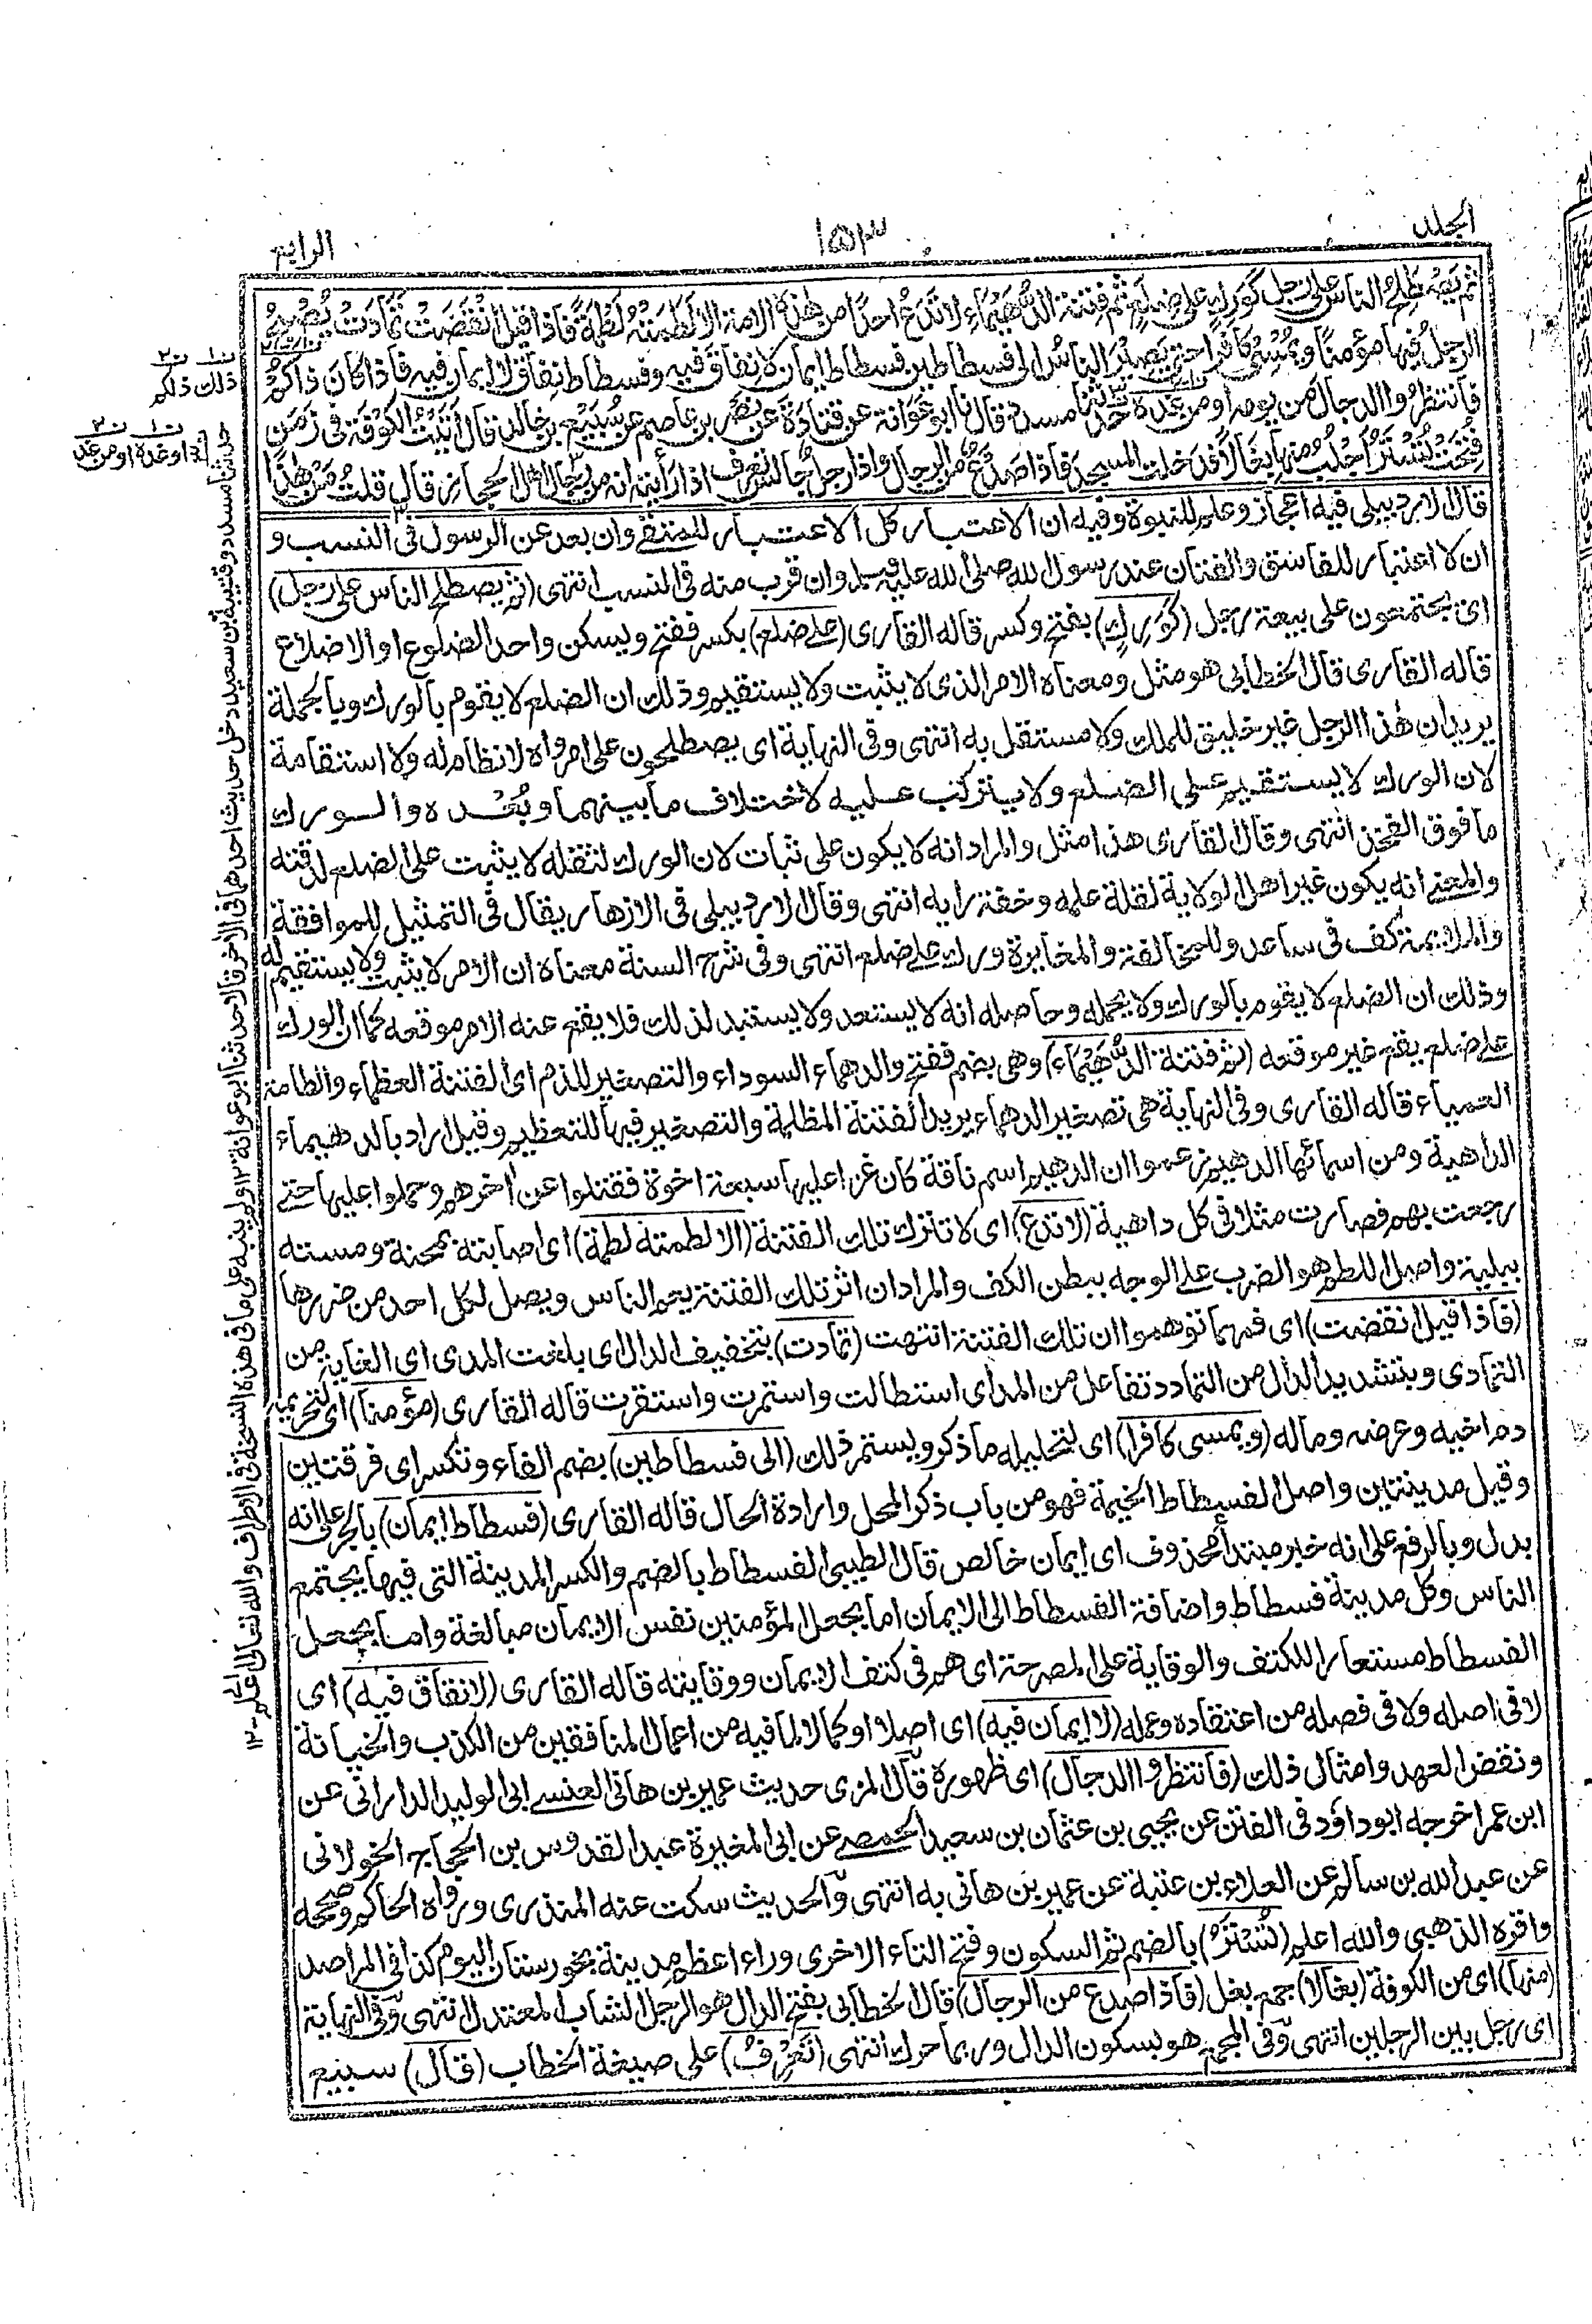 المجلد ١٥٣ الرابع
ثم يَصْطَلِحُ الناس على رجل كَوَرِكٍ على ضِلَعٍ ثم فِتْنَةَ الدُّهَيْمَاءِ لا تَدَعُ احدًا من هٰذه الامة الا لَطَمَتْهُ لَطْمَةً فاذا قيل انْقَضَتْ تَمَادَتْ يُصْبِحُ
الرجل فيها مؤمنًا ويُمْسِى كافرا حتى يَصِيْرَ الناسُ الى فسطاطين فسطاط ايمان لا نفاق فيه وفسطاط نفاق لا ايمان فيه فاذا كان ذاكم
فانتظروا الدجال من يومه او من غَدِهٖ حدثنا مسدد قال نا ابو عَوَانة عن قتادة عن نَصْر بن عاصم عن سُبَيْع بن خالد قال أتَيْتُ الكوفة فى زَمَن
فُتِحَتْ تُسْتَرُ أجْلُبُ منها بِغَالًا فدخلت المسجد فاذا صَدْعٌ من الرجال واذا رجل جالس تعرف اذا رأيته انه من رجال اهل الحجاز قال قلتُ مَنْ هٰذا
قال الاردبيلى فيه اعجاز وعلم للنبوة وفيه ان الاعتبار كل الاعتبار للمتقى وان بعد عن الرسول فى النسب و
ان لا اعتبار للفاسق والفتان عند رسول الله صلى الله عليه وسلم وان قرب منه فى النسب انتهى (ثم يصطلح الناس على رجل)
اى يجتمعون على بيعة رجل (كَوَرِكٍ) بفتح وكسر قاله القارى (على ضلع) بكسر ففتح ويسكن واحد الضلوع او الاضلاع
قاله القارى قال الخطابى هو مثل ومعناه الامر الذى لا يثبت ولا يستقيم وذلك ان الضلع لا يقوم بالورك وبالجملة
يريد ان هٰذا الرجل غير خليق للملك ولا مستقل به انتهى وفى النهاية اى يصطلحون على امر واه لا نظام له ولا استقامة
لان الورك لا يستقيم على الضلع ولا يتركب عليه لاختلاف ما بينهما وبُعْده والورك
ما فوق الفخذ انتهى وقال القارى هذا مثل والمراد انه لا يكون على ثبات لان الورك لثقله لا يثبت على الضلع لدقته
والمعنى انه يكون غير اهل الولاية لقلة علمه وخفة رايه انتهى وقال الاردبيلى فى الازهار يقال فى التمثيل للموافقة
والملايمة كف فى ساعد وللمخالفة والمغايرة ورك على ضلع انتهى وفى شرح السنة معناه ان الامر لا يثبت ولا يستقيم له
وذلك ان الضلع لا يقوم بالورك ولا يحمله وحاصله انه لا يستعد ولا يستبد لذلك فلا يقع عنه الامر موقعه كما ان الورك
على ضلع يقع غير موقعه (ثم فتنة الدُّهَيْمَاء) وهى بضم ففتح والدهماء السوداء والتصغير للذم اى الفتنة العظماء والطامة
العمياء قاله القارى وفى النهاية هى تصغير الدهماء يريد الفتنة المظلمة والتصغير فيها للتعظيم وقيل اراد بالدهيماء
الداهية ومن اسمائها الدهيم زعموا ان الدهيم اسم ناقة كان غزا عليها سبعة اخوة فقتلوا عن أخرهم وحملوا عليها حتى
رجعت بهم فصارت مثلا فى كل داهية (لا تدع) اى لا تترك تلك الفتنة (الا لطمته لطمة) اى اصابته بمحنة ومسته
ببلية واصل اللطم هو الضرب على الوجه ببطن الكف والمراد ان اثر تلك الفتنة يعم الناس ويصل لكل احد من ضررها
(فاذا قيل انقضت) اى فمهما توهموا ان تلك الفتنة انتهت (تمادت) بتخفيف الدال اى بلغت المدى اى الغاية من
التمادى وبتشديد الدال من التمادد تفاعل من المد اى استطالت واستمرت واستقرت قاله القارى (مؤمنا) اى لتحريمه
دم اخيه وعرضه وماله (ويمسى كافرا) اى لتحليله ما ذكر ويستمر ذلك (الى فسطاطين) بضم الفاء وتكسر اى فرقتين
وقيل مدينتين واصل الفسطاط الخيمة فهو من باب ذكر المحل وارادة الحال قاله القارى (فسطاط ايمان) بالجر على انه
بدل وبالرفع على انه خبر مبتدأ محذوف اى ايمان خالص قال الطيبى الفسطاط بالضم والكسر المدينة التى فيها يجتمع
الناس وكل مدينة فسطاط واضافة الفسطاط الى الايمان اما بجعل المؤمنين نفس الايمان مبالغة واما بجعل
الفسطاط مستعارا للكنف والوقاية على المصرحة اى هم فى كنف الايمان ووقايته قاله القارى (لا نفاق فيه) اى
لا فى اصله ولا فى فصله من اعتقاده وعمله (لا ايمان فيه) اى اصلا او كمالا لما فيه من اعمال المنافقين من الكذب والخيانة
ونقض العهد وامثال ذلك (فانتظروا الدجال) اى ظهوره قال المزى حديث عمير بن هانى العنسى ابى الوليد الدارانى عن
ابن عمر اخرجه ابوداؤد فى الفتن عن يحيى بن عثمان بن سعيد الحمصى عن ابى المغيرة عبد القدوس بن الحجاج الخولانى
عن عبد الله بن سالم عن العلاء بن عتبة عن عمير بن هانى به انتهى والحديث سكت عنه المنذرى ورواه الحاكم وصححه
واقره الذهبى والله اعلم (تُسْتَرُ) بالضم ثم السكون وفتح التاء الاخرى وراء اعظم مدينة بخورستان اليوم كذا فى المراصد
(منها) اى من الكوفة (بغالا) جمع بغل (فاذا صدع من الرجال) قال الخطابى بفتح الدال هو الرجل الشاب المعتدل انتهى وفى النهاية
اى رجل بين الرجلين انتهى وفى المجمع هو بسكون الدال وربما حرك انتهى (تَعْرِفُ) على صيغة الخطاب (قال) سبيع
ذلك ذلكم
او غده او من غد
حدثنا مسدد وقتيبة بن سعيد دخل حديث احدهما فى الأخر قالا حدثنا ابو عوانة ١٢ ولم ينبه على ما فى هذه النسخة فى الاطراف والله تعالى اعلم ١٢